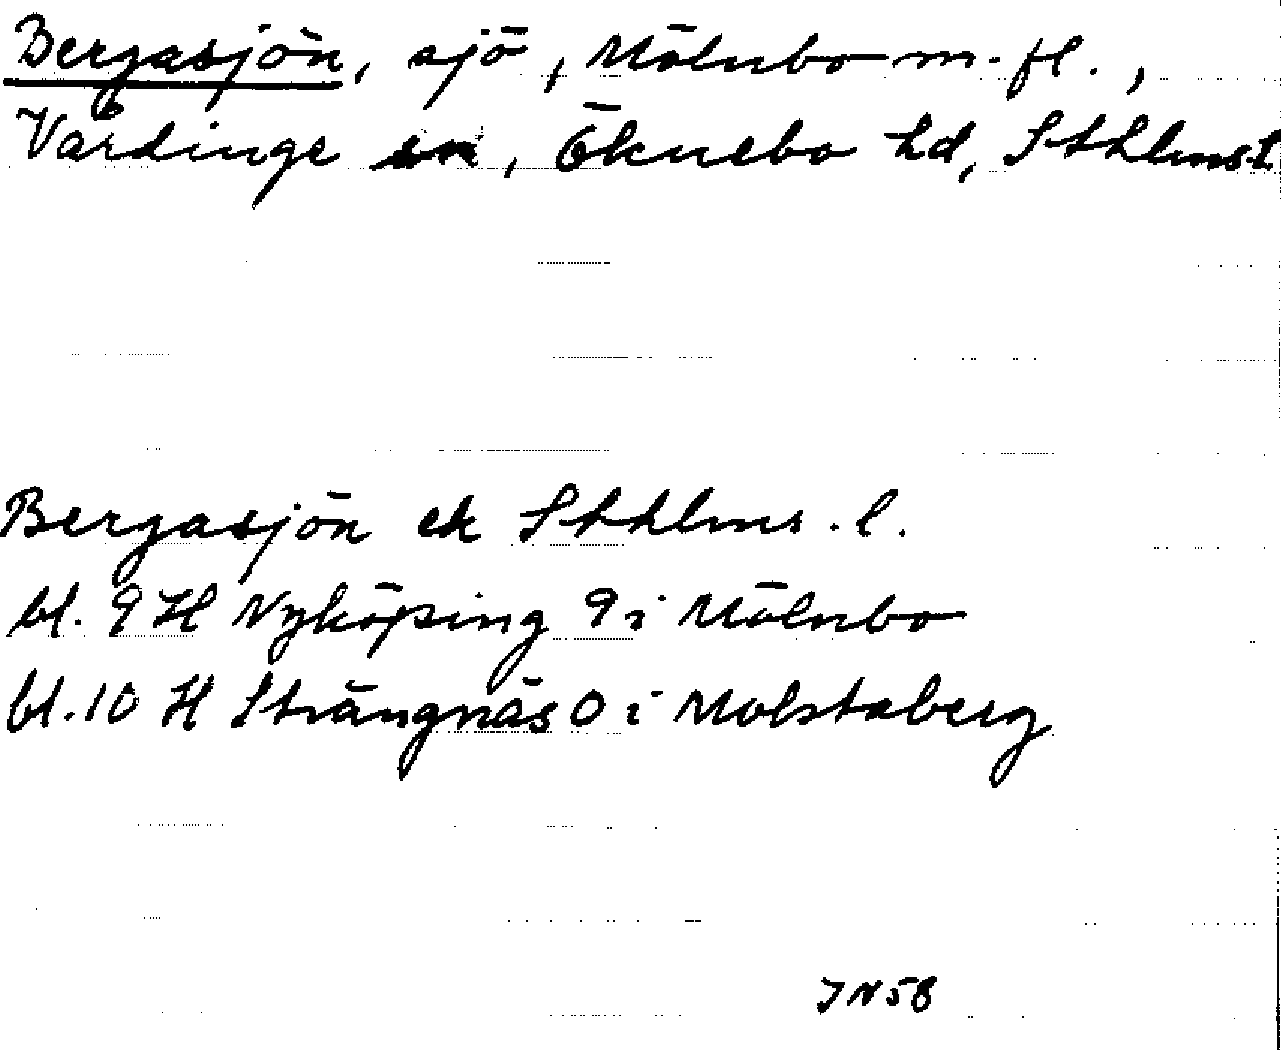 Bergasjön, sjö, Mölnbo m.fl.,
Vårdinge sn, Öknebo hd, Sthlms l.
Bergasjön ek Sthlms. l.
bl. 9 H Nyköping 9 i Mölnbo
bl. 10 H Strängnäs 0 i Molstaberg
JN58